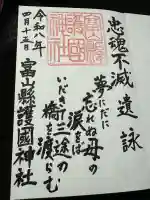 忠魂不滅 遺詠
夢にだに
忘れぬ母の
涙をば
いだきて三途の
橋を渡らむ
富山縣護國神社
令和八年
四月十五日